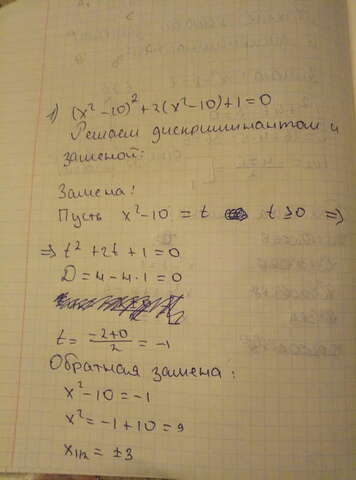 1) (x² - 10)² + 2(x² - 10) + 1 = 0
Решаем дискриминантом и
заменой:
Замена:
Пусть x² - 10 = t t ≥ 0 ⇒
⇒ t² + 2t + 1 = 0
D = 4 - 4 · 1 = 0
t = (-2 + 0)/2 = -1
Обратная замена:
x² - 10 = -1
x² = -1 + 10 = 9
x₁/₂ = ± 3